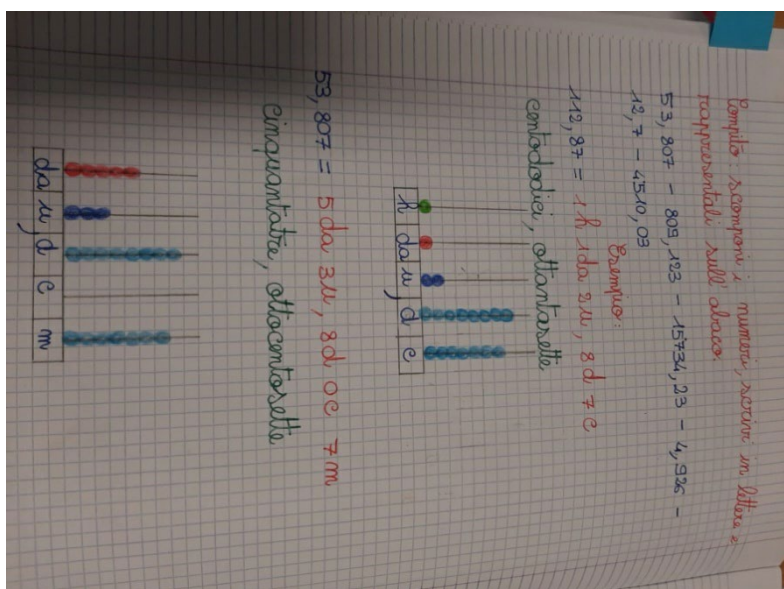 Compito: scomponi i numeri, scrivi in lettere e
rappresentali sull'abaco.
53,807 - 809,123 - 15734,23 - 4,926 -
12,7 - 4510,03
Esempio:
112,87 = 1h 1da 2u, 8d 7c
centododici, ottantasette
h da u, d c
53,807 = 5da 3u, 8d 0c 7m
cinquantatre, ottocentosette
da u, d c m